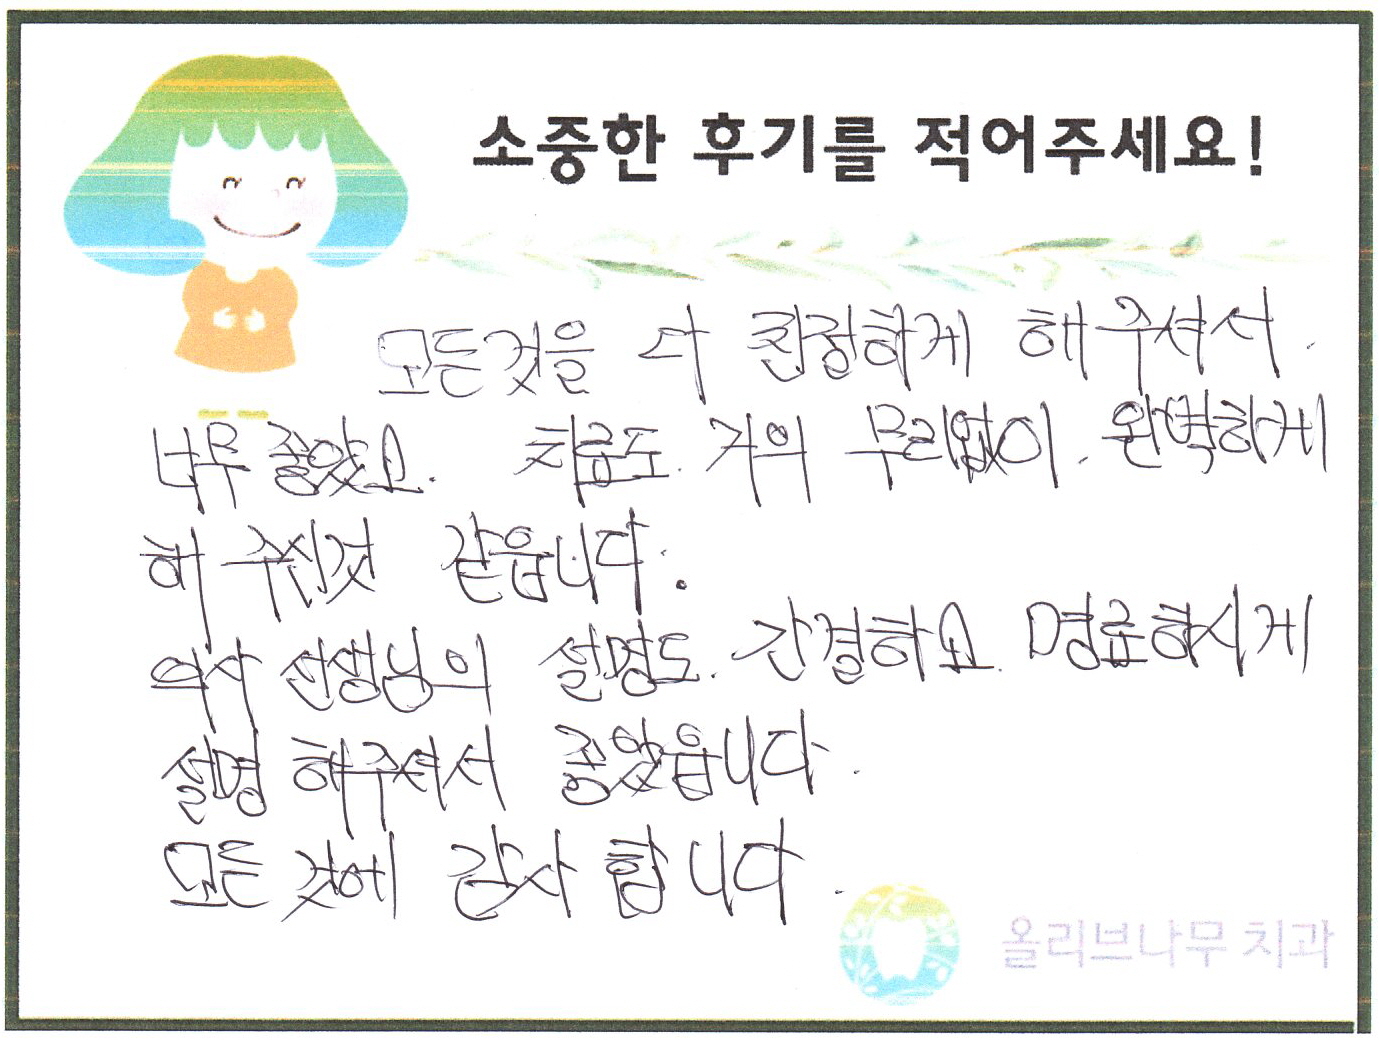 소중한 후기를 적어주세요!
모든것을 다 환경하게 해 주셔서.
너무 좋았소. 치료도. 거의 무리없이. 완벽하게
해 주신것 같읍니다.
의사 선생님의 설명도. 간결하요. 명료하시게
설명 해주셔서 좋았읍니다.
모든 것에 감사 합니다.
올리브나무 치과